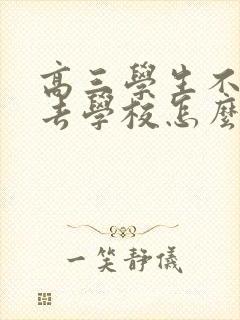 高三學生不
去學校怎麼
一笑靜儀